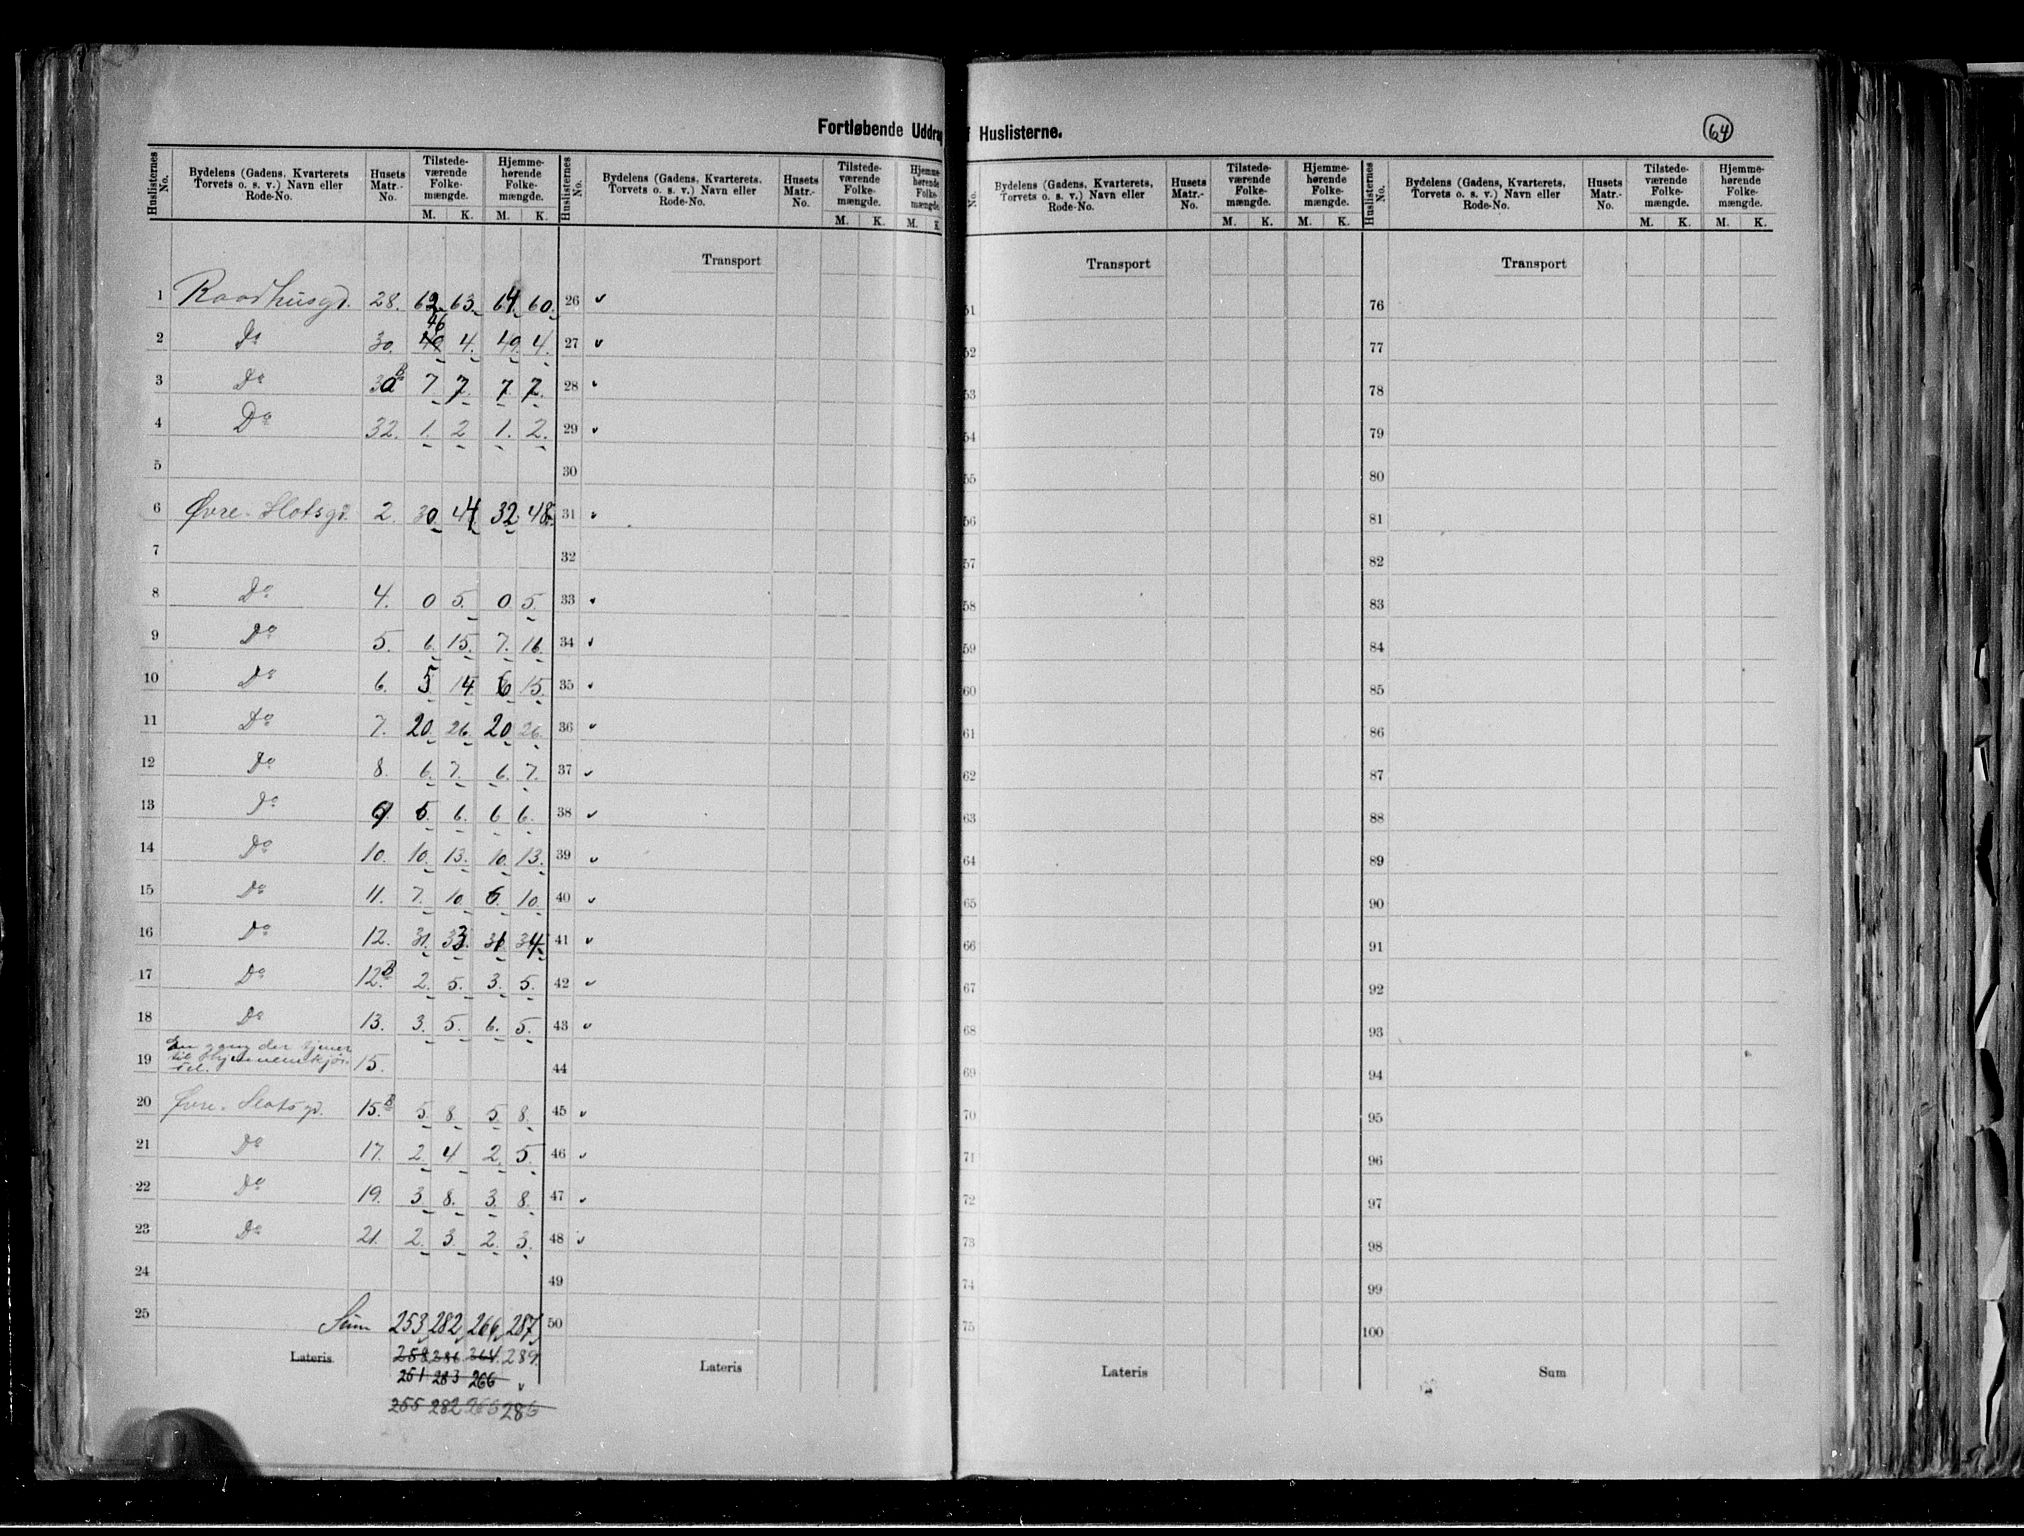 Fortløbende Uddrag af Huslisterne.
64
Huslisternes No. Bydelens (Gadens, Kvarterets, Torvets o. s. v.) Navn eller Rode-No. Husets Matr.-No. Tilstedeværende Folkemængde. M. K. Hjemmehørende Folkemængde. M. K.
Huslisternes No. Bydelens (Gadens, Kvarterets, Torvets o. s. v.) Navn eller Rode-No. Husets Matr.-No. Tilstedeværende Folkemængde. M. K. Hjemmehørende Folkemængde. M. K.
No. Bydelens (Gadens, Kvarterets, Torvets o. s. v.) Navn eller Rode-No. Husets Matr.-No. Tilstedeværende Folkemængde. M. K. Hjemmehørende Folkemængde. M. K.
Huslisternes No. Bydelens (Gadens, Kvarterets, Torvets o. s. v.) Navn eller Rode-No. Husets Matr.-No. Tilstedeværende Folkemængde. M. K. Hjemmehørende Folkemængde. M. K.
Transport Transport Transport
1 Raadhusgd. 28. 62. 63. 64. 60. 26 51 76
46
2 Do 30. 49 4. 49. 4. 27 52 77
3 Do 30B 7 7. 7. 7. 28 53 78
4 Do 32. 1. 2 1. 2. 29 54 79
5 30 55 80
6 Øvre Slotsgd. 2. 30. 44. 32. 48. 31 56 81
7 32 57 82
8 Do 4. 0 5. 0 5. 33 58 83
9 Do 5. 6. 15. 7. 16. 34 59 84
10 Do 6. 5 14 6 15. 35 60 85
11 Do 7. 20. 26. 20 26. 36 61 86
12 Do 8. 6. 7. 6. 7. 37 62 87
13 Do 9 5. 6. 6 6. 38 63 88
14 Do 10. 10. 13. 10. 13. 39 64 89
15 Do 11. 7. 10. 6. 10. 40 65 90
16 Do 12. 31. 33. 31. 34. 41 66 91
17 Do 12.B 2. 5. 3. 5. 42 67 92
18 Do 13. 3. 5. 6. 5. 43 68 93
En gang der tjener
19 til Gjennemkjør- 15. 44 69 94
sel.
20 Øvre Slotsgd. 15.B 5 8. 5 8. 45 70 95
21 Do 17. 2. 4 2. 5. 46 71 96
22 Do 19. 3 8. 3. 8. 47 72 97
23 Do 21. 2. 3. 2. 3. 48 73 98
24 49 74 99
25 Sum 253, 282, 266, 287, 50 75 100
Lateris 258 286 264 289. Lateris Lateris Sum
251 283 266
255 282 266 286